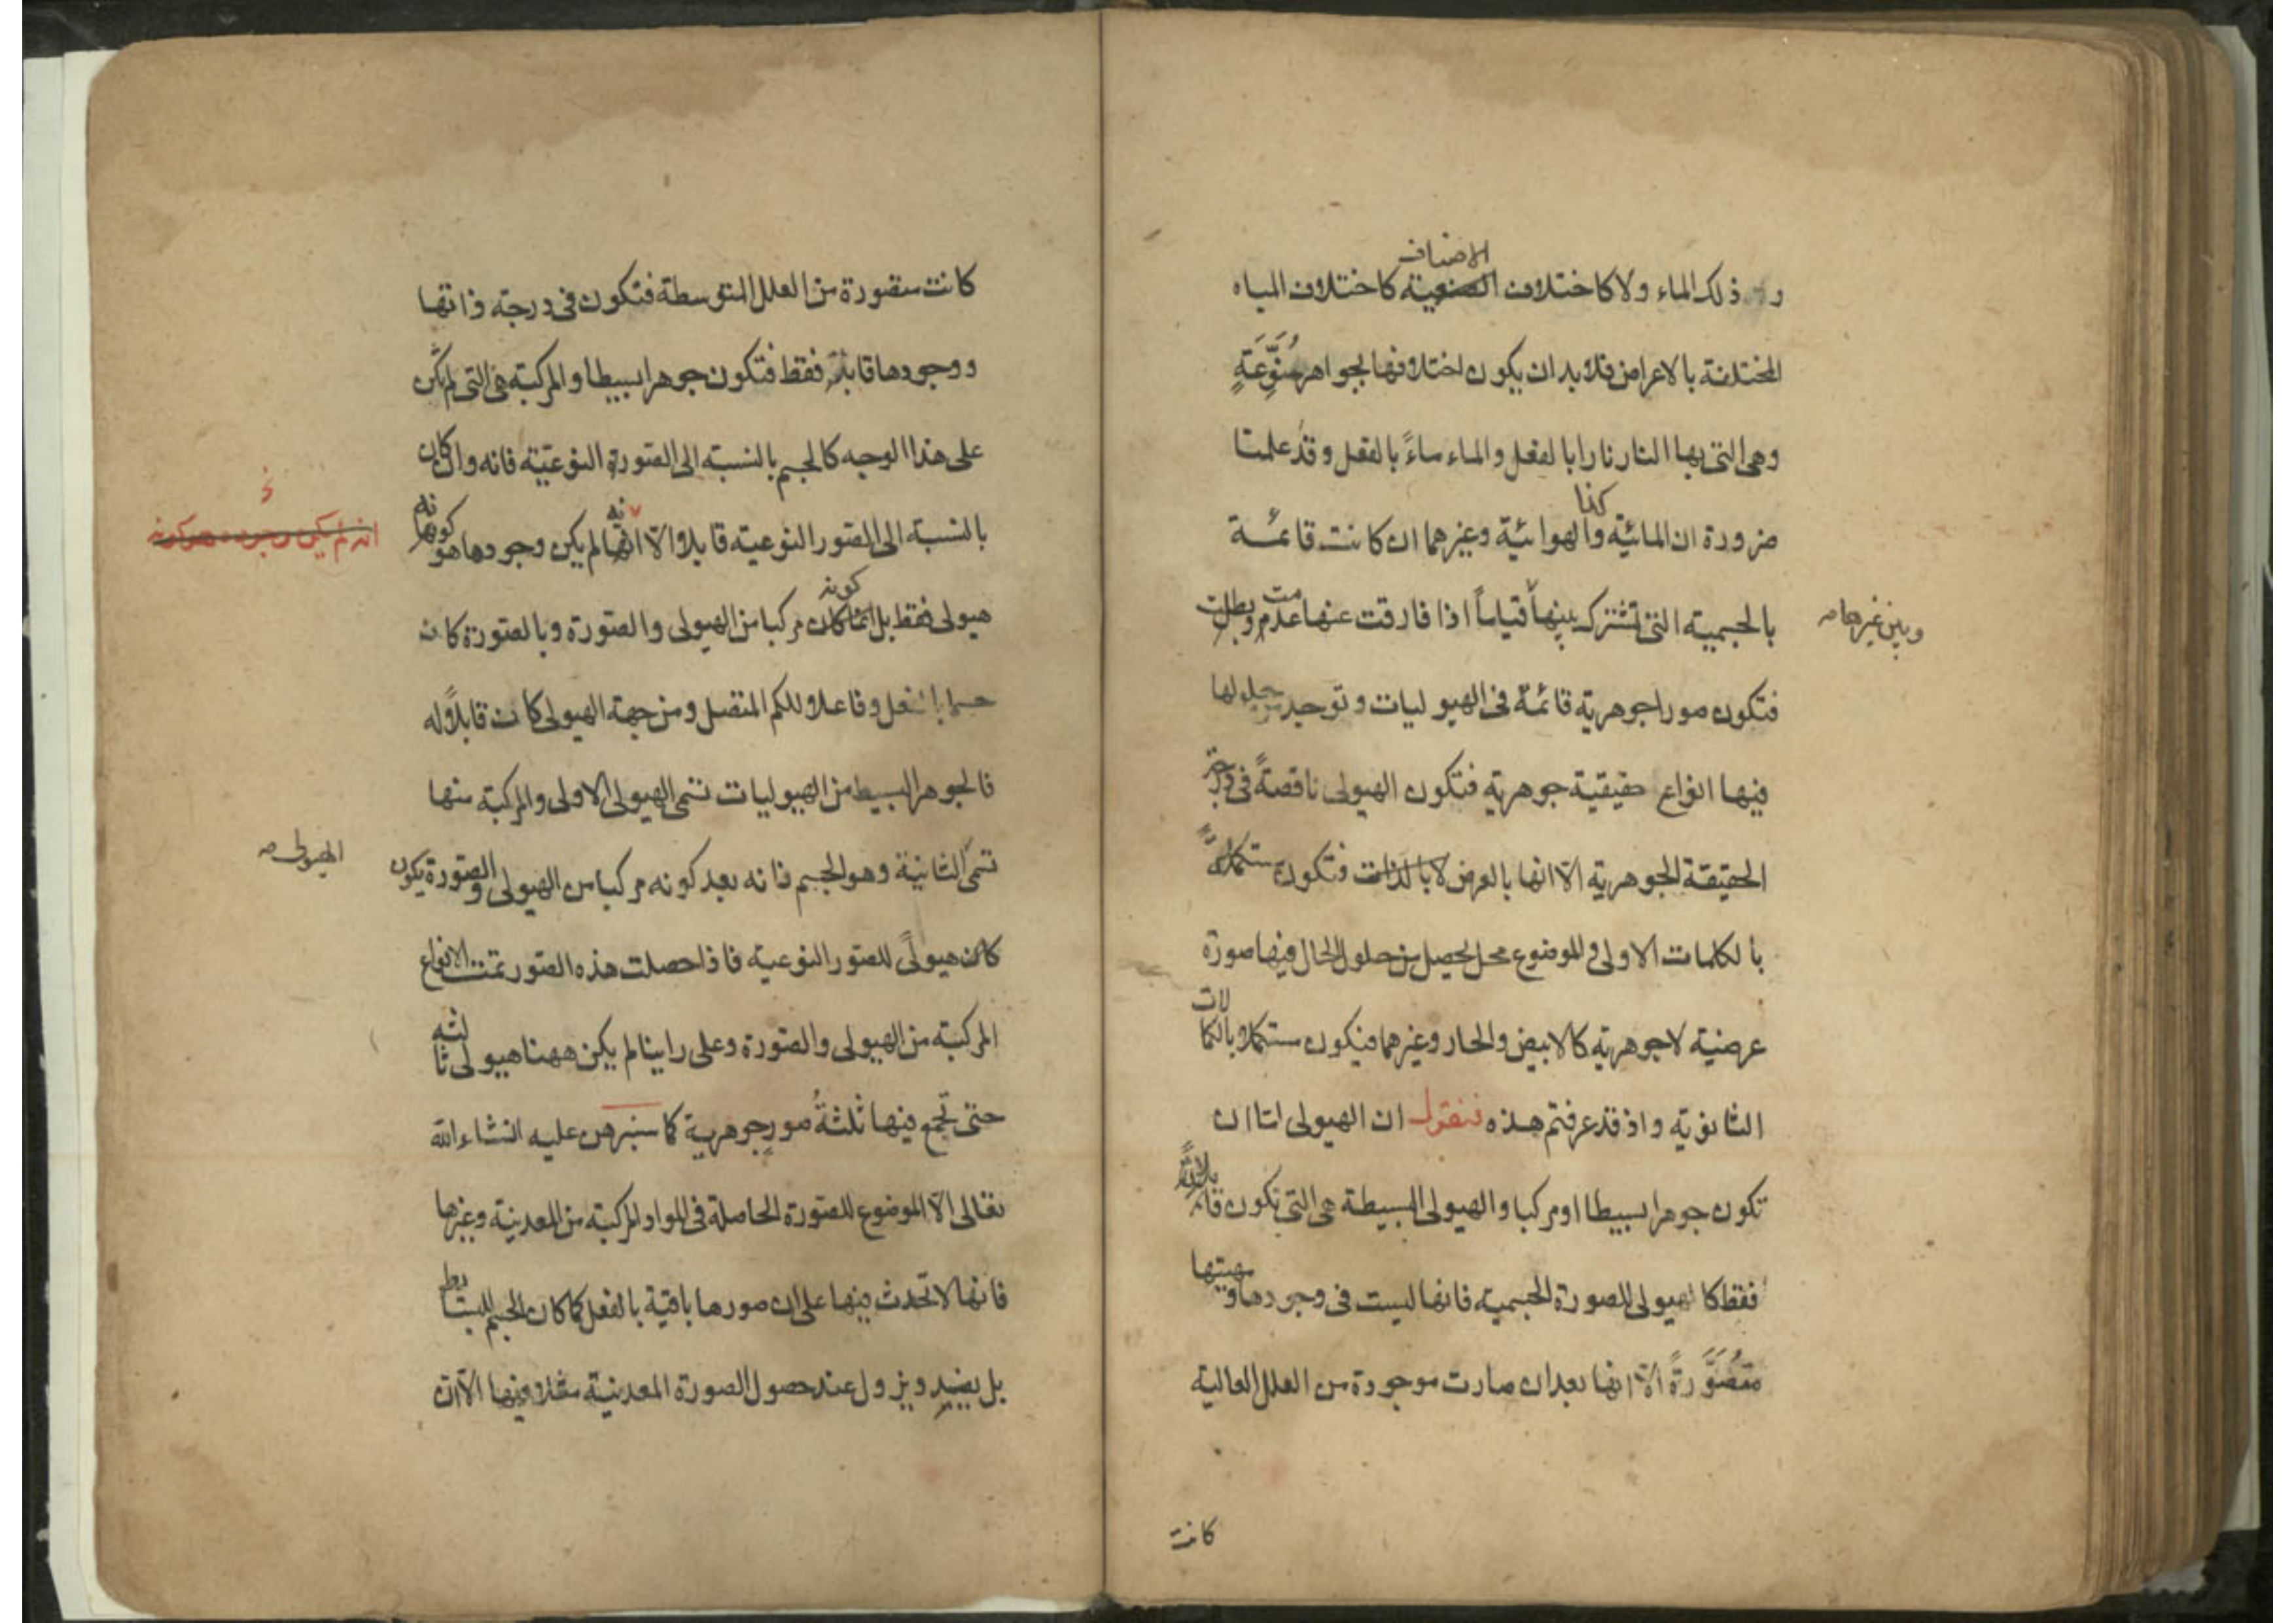 ذلك الماء ولا كاختلاف الصنعية كاختلاف المياه
الاضافـ
المختلفة بالاعراض فلابد ان يكون اختلافها بجواهر مُنَوِّعَةٍ
وهى التى بها النار نارا بالفعل والماء ماءً بالفعل وقد علمتا
كذا
ضرورة ان المائية والهوائية وغيرهما ان كانت قائمة
بالجسمية التى تشترك بينها قياساً اذا فارقت عنها عدمت وبطلت
وبين غيرها صـ
فتكون صورا جوهرية قائمة فى الهيوليات وتوحيد حلولها
فيها انواع حقيقية جوهرية فتكون الهيولى ناقصةً فى
الحقيقة الجوهرية الّا انها بالعرض لا بالذات فتكون مستكملة
بالكمالات الاولى والموضوع محل يحصل من حلول الحال فيها صورة
عرضية لا جوهرية كالابيض والحار وغيرهما فيكون مستكملا بالكمالات
الثانوية واذ قد عرفتم هذه فنقول ان الهيولى امّا ان
تكون جوهرا بسيطا او مركبا والهيولى البسيطة هى التى تكون قابلةً
فقط كالهيولى للصورة الجسمية فانها ليست فى وجودها ومهيتها
متصَوَّرَةً الّا انها بعد ان صارت موجودة من العلل العالية
كانت
كانت متصورة من العلل المتوسطة فتكون فى درجة ذاتها
ووجودها قابلة فقط فتكون جوهرا بسيطا والمركبة هى التى لم تكن
على هذا الوجه كالجسم بالنسبة الى الصورة النوعيّة فانه وان كان
بالنسبة الى الصور النوعية قابلا الّا انها لم يكن وجودها هو كونها
نه
نه
انه لم يكن وجوده هو كونه
هيولى فقط بل انما كان مركبا من الهيولى والصورة وبالصورة كانت
كونه
جسما بالفعل وفاعلا للكم المتصل ومن جهة الهيولى كانت قابلاً له
فالجوهر البسيط من الهيوليات تسمى الهيولى الاولى والمركبة منها
تسمّى الثانية وهو الجسم فانه بعد كونه مركبا من الهيولى والصورة يكون
الهيولى صـ
كان هيولًى للصور النوعية فاذا حصلت هذه الصور تمت الانواع
المركبة من الهيولى والصورة وعلى راينا لم يكن ههنا هيولى ثالثه
حتى تجمع فيها ثلثةُ صورٍ جوهرية كما سنبرهن عليه انشاء الله
تعالى الّا الموضوع للصورة الحاصلة فى المواد المركبة من المعدنية وغيرها
فانها لا تحدث فيها على ان صورها باقية بالفعل كما كان الجسم للبسائط
بل يفسد ويزول عند حصول الصورة المعدنية مثلا فيها الّا ان